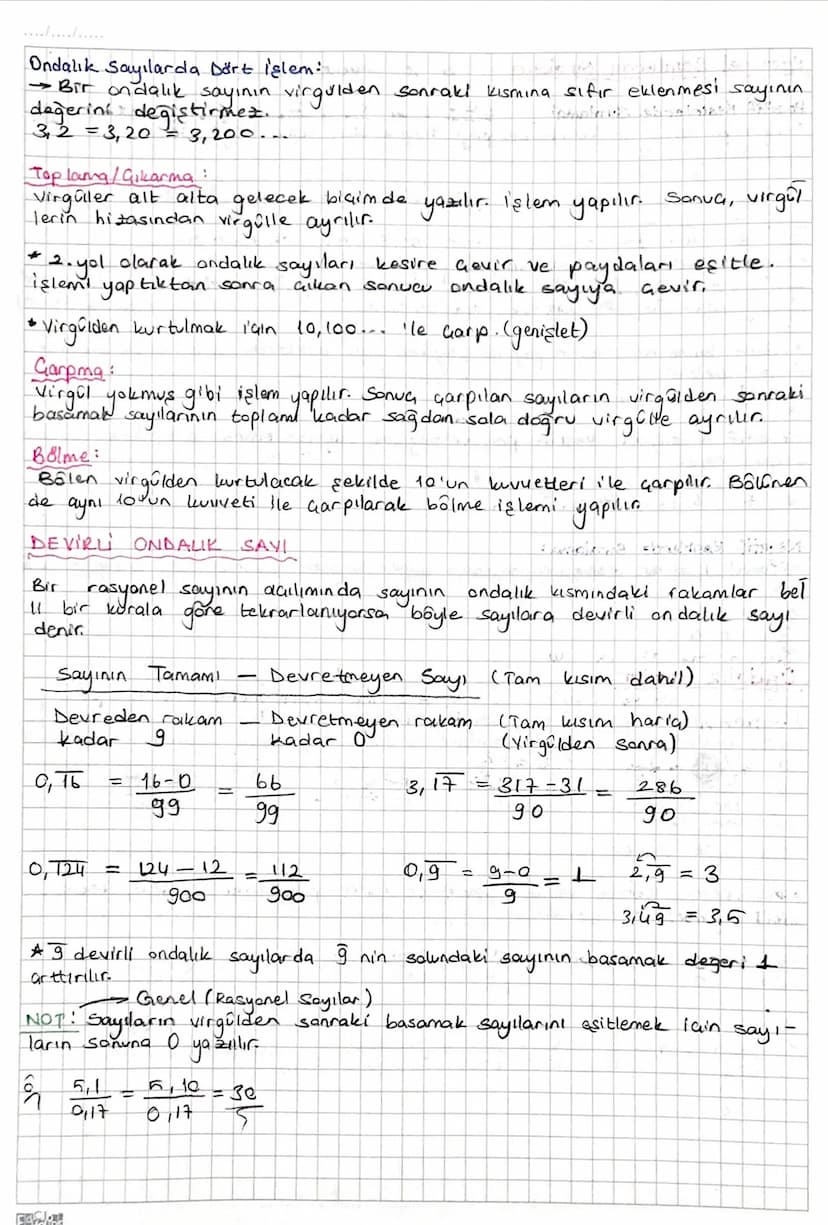 Ondalık Sayılarda Dört İşlem:
→ Bir ondalık sayının virgülden sonraki kısmına sıfır eklenmesi sayının
değerini değiştirmez.
3,2 = 3,20 = 3,200...
Toplama/Çıkarma:
Virgüller alt alta gelecek biçimde yazılır. İşlem yapılır. Sonuç, virgül
lerin hizasından virgülle ayrılır.
* 2. yol olarak ondalık sayıları kesire çevir ve paydaları eşitle.
işlemi yaptıktan sonra çıkan sonucu ondalık sayıya çevir.
* Virgülden kurtulmak için 10,100... ile çarp. (genişlet)
Çarpma:
Virgül yokmuş gibi işlem yapılır. Sonuç çarpılan sayıların virgülden sonraki
basamak sayılarının toplamı kadar sağdan sola doğru virgülle ayrılır.
Bölme:
Bölen virgülden kurtulacak şekilde 10'un kuvvetleri ile çarpılır. Bölünen
de aynı 10'un kuvveti ile çarpılarak bölme işlemi yapılır.
DEVİRLİ ONDALIK SAYI
Bir rasyonel sayının açılımında sayının ondalık kısmındaki rakamlar bel
li bir kurala göre tekrarlanıyorsa böyle sayılara devirli ondalık sayı
denir.
Sayının Tamamı — Devretmeyen Sayı (Tam kısım dahil)
Devreden rakam — Devretmeyen rakam (Tam kısım hariç)
kadar 9 kadar 0 (Virgülden sonra)
0,1̅6̅ = 16-0/99 = 66/99 3,1̅7̅ = 317-31/90 = 286/90
0,1̅2̅4̅ = 124-12/900 = 112/900 0,9̅ = 9-0/9 = 1 2,9̅ = 3
3,49̅ = 3,5
* 9̅ devirli ondalık sayılarda 9̅ nin solundaki sayının basamak değeri 1
arttırılır.
→ Genel (Rasyonel Sayılar)
NOT: Sayıların virgülden sonraki basamak sayılarını eşitlemek için sayı-
ların sonuna 0 yazılır.
ör 5,1/0,17 = 5,10/0,17 = 30/5